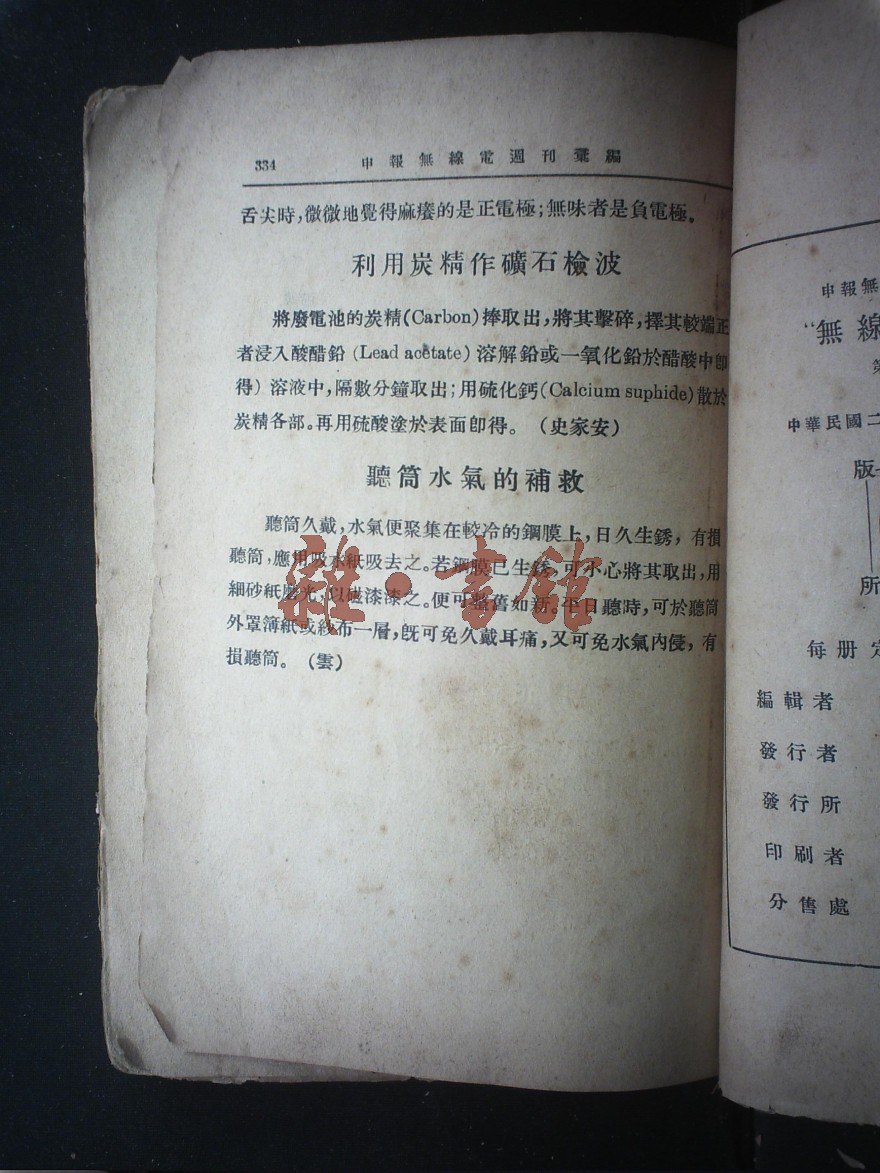 334 申報無線電週刊彙編
舌尖時,微微地覺得麻癢的是正電極;無味者是負電極。
利用炭精作礦石檢波
將廢電池的炭精(Carbon)捧取出,將其擊碎,擇其較端正
者浸入酸醋鉛(Lead acetate)溶解鉛或一氧化鉛於醋酸中卽
得)溶液中,隔數分鐘取出;用硫化鈣(Calcium suphide)散於
炭精各部。再用硫酸塗於表面卽得。(史家安)
聽筒水氣的補救
聽筒久戴,水氣便聚集在較冷的鋼膜上,日久生銹,有損
聽筒,應用吸水紙吸去之。若鋼膜已生銹,可小心將其取出,用
細砂紙磨光,以磁漆漆之。便可整舊如新。平日聽時,可於聽筒
外罩薄紙或紗布一層,旣可免久戴耳痛,又可免水氣內侵,有
損聽筒。(雲)
雜·書館
申報無
“無線
第
中華民國二
版
所
每册定
編輯者
發行者
發行所
印刷者
分售處